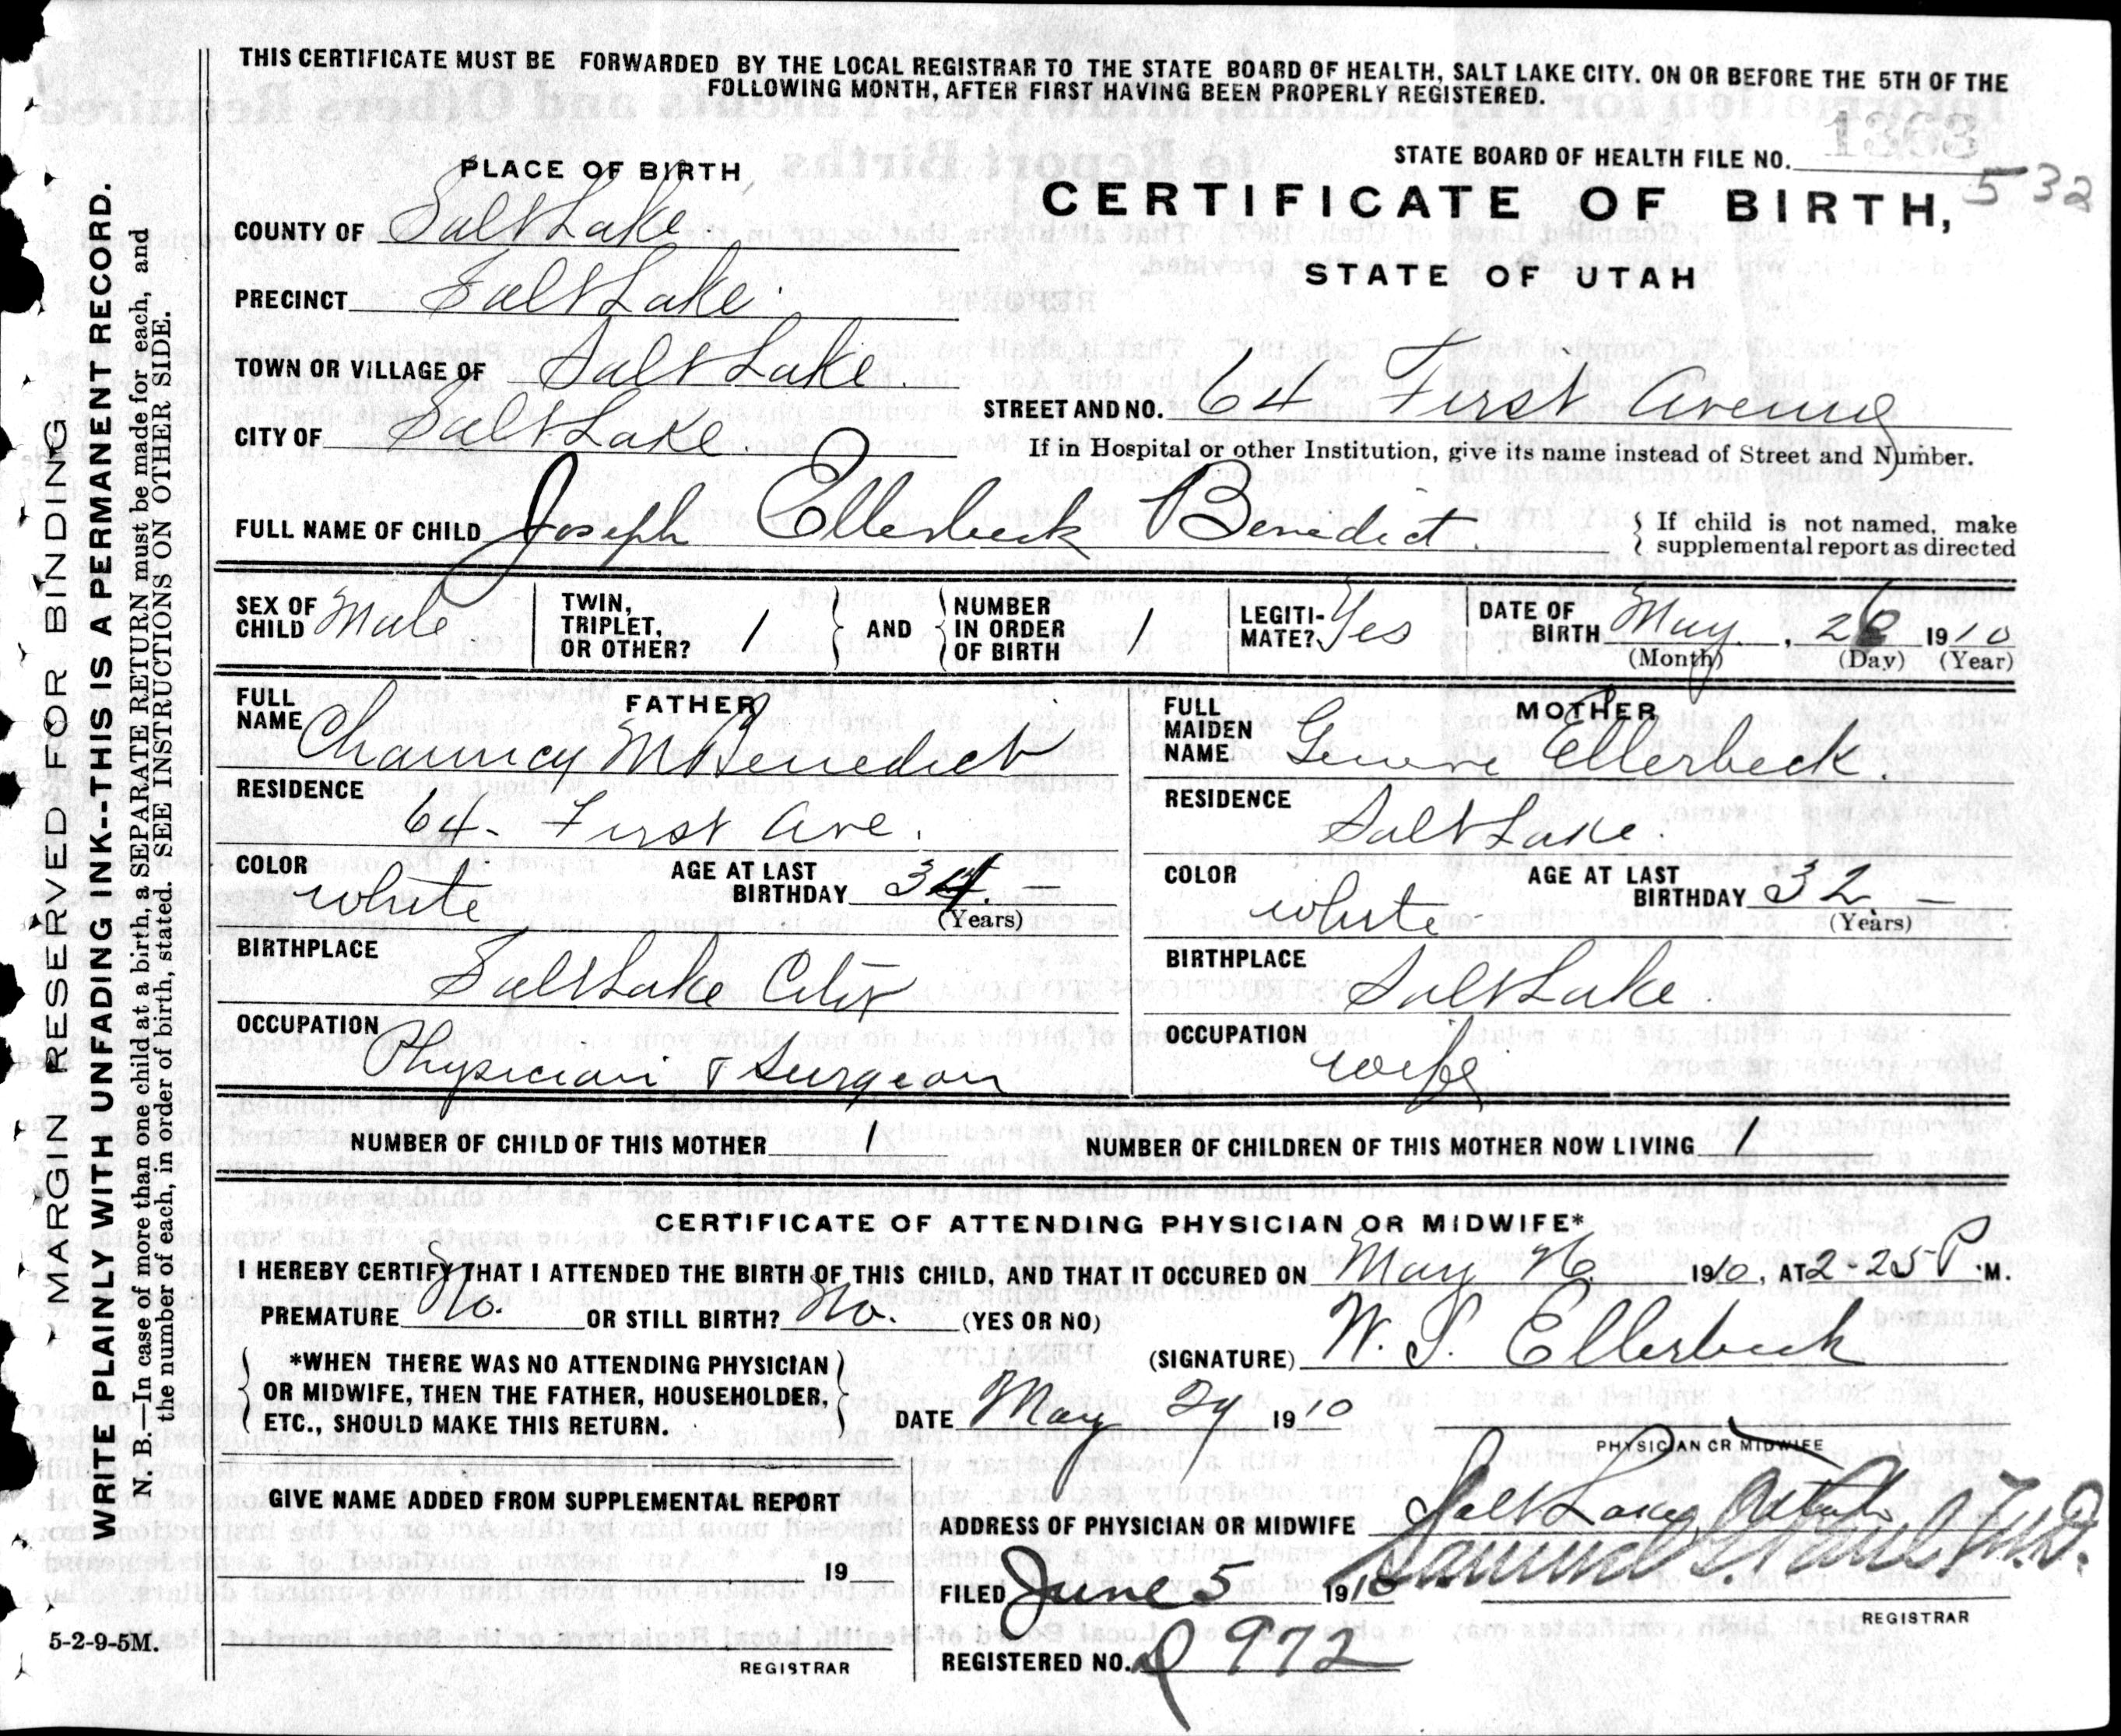 THIS CERTIFICATE MUST BE FORWARDED BY THE LOCAL REGISTRAR TO THE STATE BOARD OF HEALTH, SALT LAKE CITY. ON OR BEFORE THE 5TH OF THE
FOLLOWING MONTH, AFTER FIRST HAVING BEEN PROPERLY REGISTERED.
1363
STATE BOARD OF HEALTH FILE NO.
532
PLACE OF BIRTH
CERTIFICATE OF BIRTH,
STATE OF UTAH
COUNTY OF Salt Lake.
PRECINCT Salt Lake.
TOWN OR VILLAGE OF Salt Lake.
STREET AND NO. 64 First Avenue
CITY OF Salt Lake.
If in Hospital or other Institution, give its name instead of Street and Number.
FULL NAME OF CHILD Joseph Ellerbeck Benedict.
If child is not named, make
supplemental report as directed
SEX OF CHILD Male
TWIN, TRIPLET, OR OTHER? 1
AND
NUMBER IN ORDER OF BIRTH 1
LEGITI-MATE? Yes
DATE OF BIRTH May, 26 1910
(Month) (Day) (Year)
FATHER
FULL NAME Chauncy M Benedict
RESIDENCE
64 - First Ave.
COLOR white
AGE AT LAST BIRTHDAY 34. –
(Years)
BIRTHPLACE
Salt Lake City
OCCUPATION
Physician & Surgeon
MOTHER
FULL MAIDEN NAME Ellerbeck.
RESIDENCE
Salt Lake.
COLOR white
AGE AT LAST BIRTHDAY 32 –
(Years)
BIRTHPLACE
Salt Lake.
OCCUPATION
wife
NUMBER OF CHILD OF THIS MOTHER 1
NUMBER OF CHILDREN OF THIS MOTHER NOW LIVING 1
CERTIFICATE OF ATTENDING PHYSICIAN OR MIDWIFE*
I HEREBY CERTIFY THAT I ATTENDED THE BIRTH OF THIS CHILD, AND THAT IT OCCURED ON May 26 1910, AT 2-25 P.M.
PREMATURE No. OR STILL BIRTH? No. (YES OR NO)
*WHEN THERE WAS NO ATTENDING PHYSICIAN
OR MIDWIFE, THEN THE FATHER, HOUSEHOLDER,
ETC., SHOULD MAKE THIS RETURN.
(SIGNATURE) W. S. Ellerbeck
DATE May 27 1910
PHYSICIAN OR MIDWIFE
GIVE NAME ADDED FROM SUPPLEMENTAL REPORT
19
REGISTRAR
ADDRESS OF PHYSICIAN OR MIDWIFE Salt Lake, Utah
FILED June 5 1910
M.D.
REGISTRAR
REGISTERED NO. 972
MARGIN RESERVED FOR BINDING
WRITE PLAINLY WITH UNFADING INK--THIS IS A PERMANENT RECORD.
N. B.—In case of more than one child at a birth, a SEPARATE RETURN must be made for each, and
the number of each, in order of birth, stated. SEE INSTRUCTIONS ON OTHER SIDE.
5-2-9-5M.